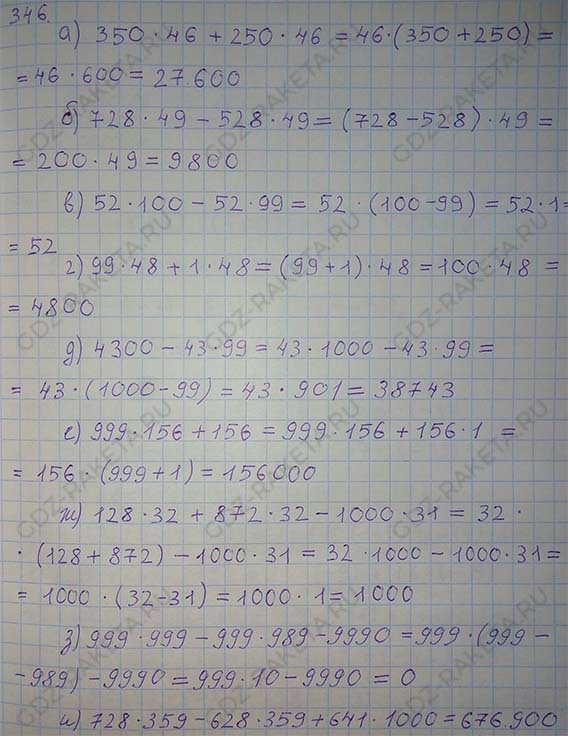 346.
а) 350 · 46 + 250 · 46 = 46 · (350 + 250) =
= 46 · 600 = 27.600
б) 728 · 49 – 528 · 49 = (728 – 528) · 49 =
= 200 · 49 = 9800
в) 52 · 100 – 52 · 99 = 52 · (100 – 99) = 52 · 1 =
= 52
г) 99 · 48 + 1 · 48 = (99 + 1) · 48 = 100 · 48 =
= 4800
д) 4300 – 43 · 99 = 43 · 1000 – 43 · 99 =
= 43 · (1000 – 99) = 43 · 901 = 38743
е) 999 · 156 + 156 = 999 · 156 + 156 · 1 =
= 156 · (999 + 1) = 156000
ж) 128 · 32 + 872 · 32 – 1000 · 31 = 32 ·
· (128 + 872) – 1000 · 31 = 32 · 1000 – 1000 · 31 =
= 1000 · (32 – 31) = 1000 · 1 = 1000
з) 999 · 999 – 999 · 989 – 9990 = 999 · (999 –
– 989) – 9990 = 999 · 10 – 9990 = 0
и) 728 · 359 – 628 · 359 + 641 · 1000 = 676.900
GDZ-RAKETA.RU